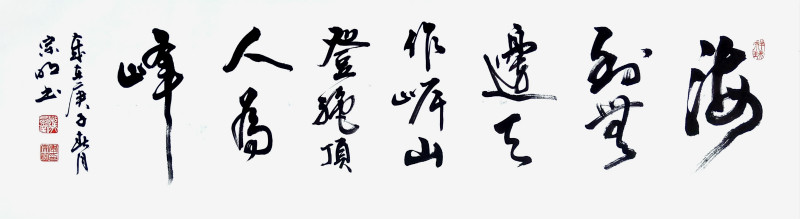 海
到無
邊天
作岸山
登絶頂
人為
峰
歲在庚子月
宗书